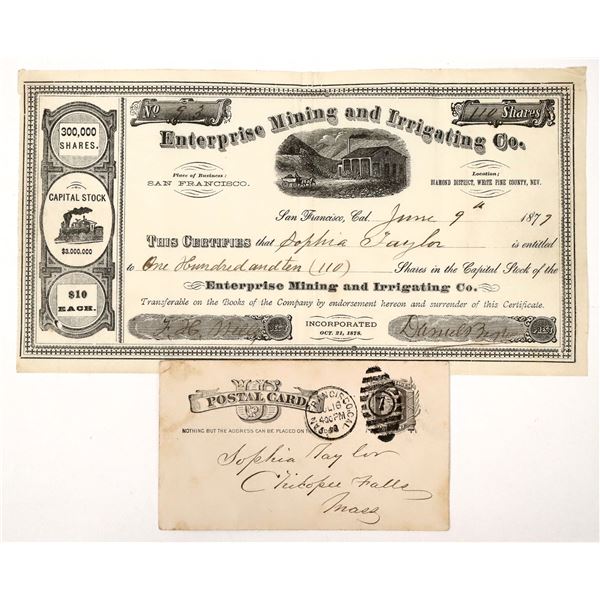 No 93
110 Shares
Enterprise Mining and Irrigating Co.
300,000
SHARES.
CAPITAL STOCK
$3.000.000
$10
EACH.
Place of Business:
SAN FRANCISCO.
Location:
DIAMOND DISTRICT, WHITE PINE COUNTY, NEV.
San Francisco, Cal. June 9th 1879
THIS CERTIFIES that Sophia Taylor is entitled
to One Hundred and ten (110) Shares in the Capital Stock of the
Enterprise Mining and Irrigating Co.
Transferable on the Books of the Company by endorsement hereon and surrender of this Certificate.
INCORPORATED
OCT. 21, 1878.
Daniel
PREST
US
POSTAL CARD
NOTHING BUT THE ADDRESS CAN BE PLACED ON
SAN FRANCISCO CAL.
JUL 16
4 30 PM
7
Sophia Taylor
Chicopee Falls
Mass